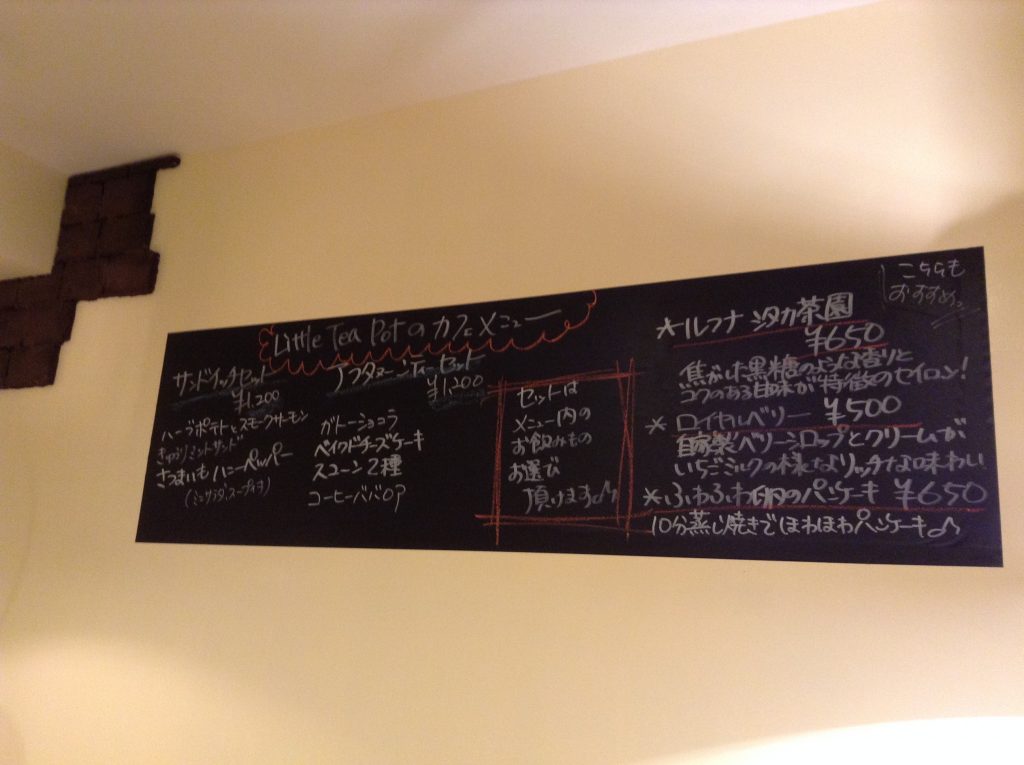 Little Tea Potのカフェメニュー
サンドイッチセット
¥1,200
ハーブポテトとスモークサーモン
きゅうりミントサンド
さつまいもハニーペッパー
(ミニサラダ、スープ付き)
アフタヌーンティーセット
¥1,200
ガトーショコラ
ベイクドチーズケーキ
スコーン2種
コーヒーババロア
セットは
メニュー内の
お飲みもの
お選び
頂けます♪
こちらも
おすすめっ
*ルフナ シタカ茶園
¥650
焦がした黒糖のような香りと
コクのある甘味が特徴のセイロン!
*ロイヤルベリー ¥500
自家製ベリーシロップとクリームが
いちごミルクの様なリッチな味わい
*ふわふわ卵のパンケーキ ¥650
10分蒸し焼きでほわほわパンケーキ♪